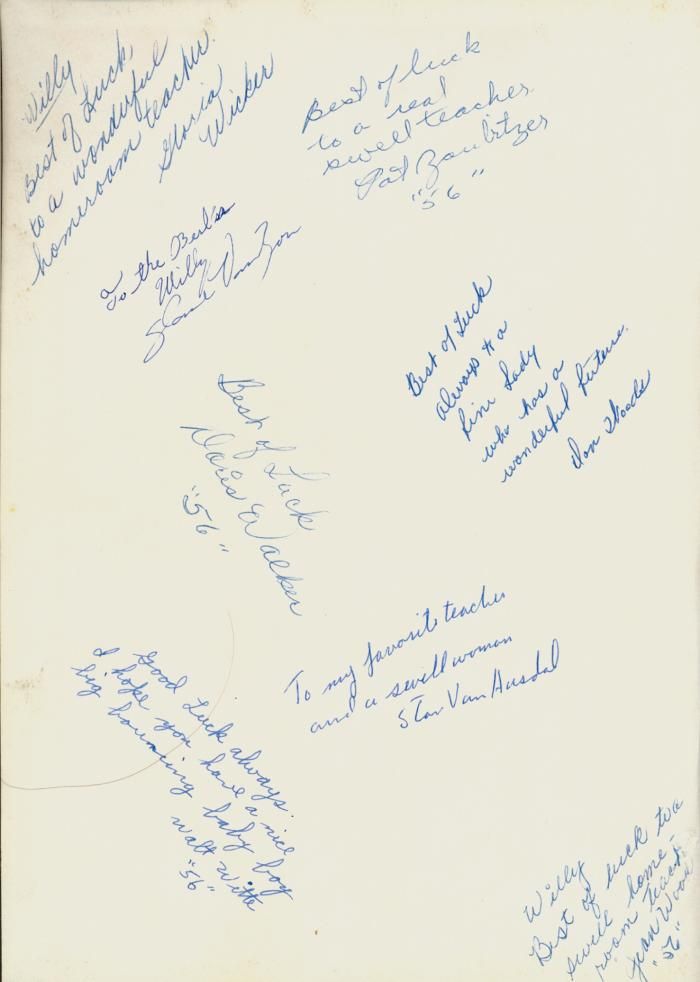 Willy
Best of Luck
to a wonderful
homeroom teacher.
Gloria
Wicker
Best of luck
to a real
swell teacher
Pat Zaubitzer
"56"
To the Best
Willy
Best of Luck
always to a
fine lady
who has a
wonderful future.
Don Woods
Best of Luck
Doris Walker
"56"
To my favorite teacher
and a swell woman
Stan Van Ausdal
Good Luck always.
I hope you have a nice
big bouncing baby boy
Walt Witte
"56"
Willy
Best of luck to a
swell home-
room teach
Jean Wood
"56"